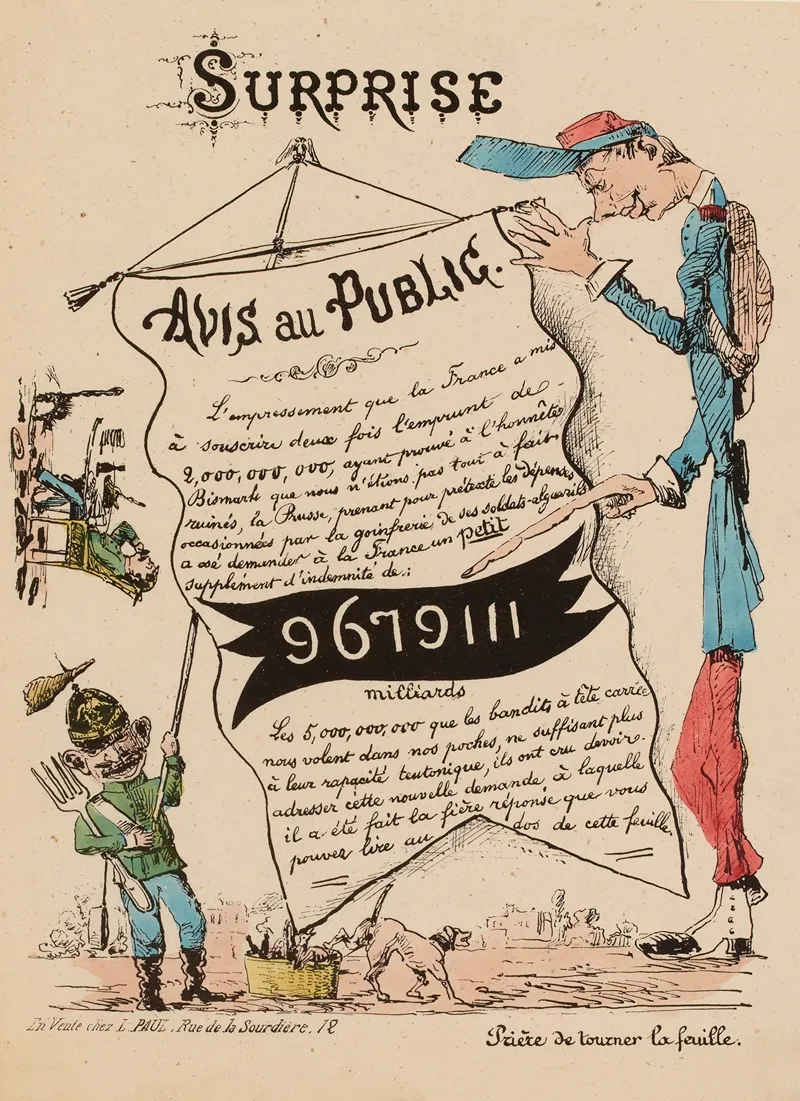 SURPRISE
AVIS au PUBLIC.
L'empressement que la France a mis
à souscrire deux fois l'emprunt de
2,000,000,000, ayant prouvé à l'honnête
Bismark que nous n'étions pas tout à fait
ruinés, la Prusse, prenant pour prétexte les dépenses
occasionnées par la goinfrerie de ses soldats-alguazils
a osé demander à la France un petit
supplément d'indemnité de:
9679111
milliards
Les 5,000,000,000 que les bandits à tête carrée
nous volent dans nos poches, ne suffisant plus
à leur rapacité teutonique, ils ont cru devoir
adresser cette nouvelle demande à laquelle
il a été fait la fière réponse que vous
pouvez lire au dos de cette feuille.
En Vente chez L. PAUL, Rue de la Sourdière, 12
Prière de tourner la feuille.